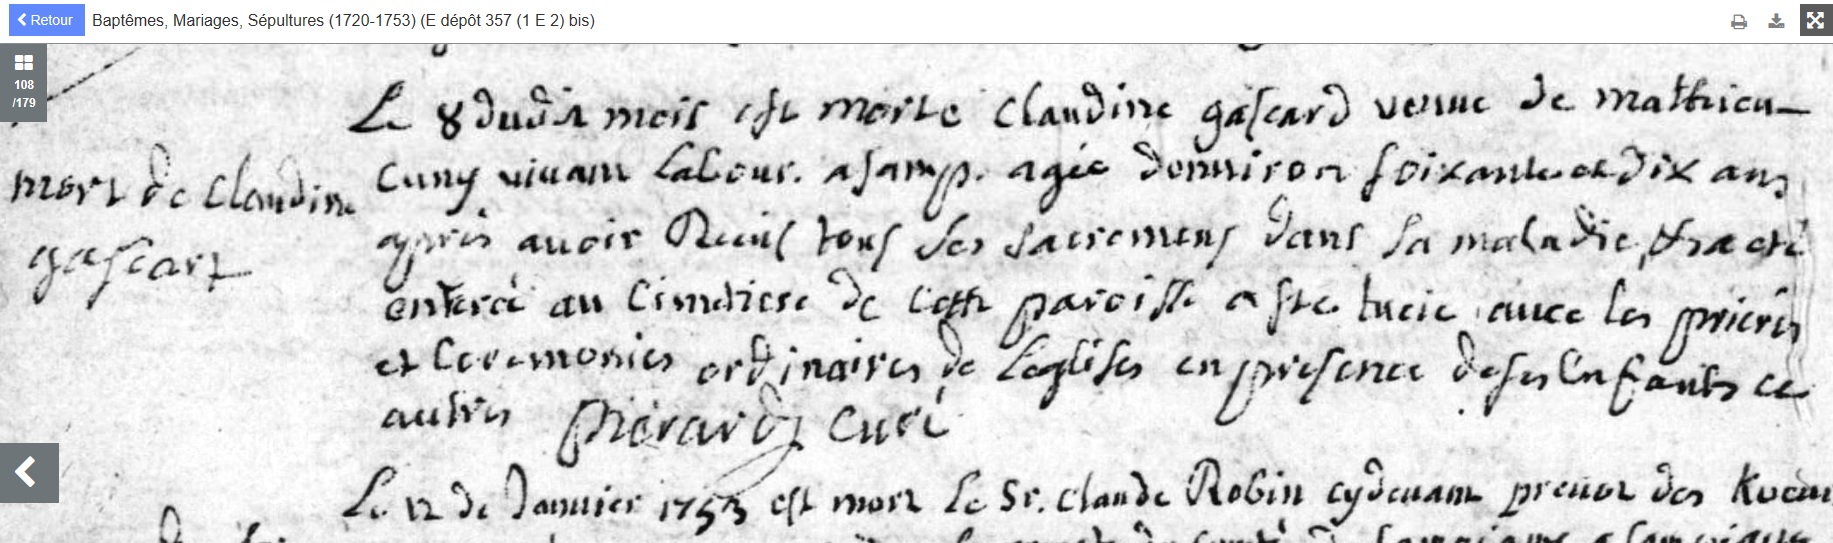 Retour Baptêmes, Mariages, Sépultures (1720-1753) (E dépôt 357 (1 E 2) bis)
108
/179
mort de Claudine
gascart
Le 8 dudit mois est morte Claudine gascard veuve de mathieu
Cuny vivant Labour. a samp. agée denviron soixante et dix ans
après avoir Receus tous ses sacremens dans sa maladie, et a eté
enteré au Cimetiere de Cette paroisse a ste. lucie avec les prieres
et Ceremonies ordinaires de Leglises en presence de ses Enfants et
autres pierard curé
Le 12 de Janvier 1753 est mort Le Sr. Claude Robin cydevant prevot des